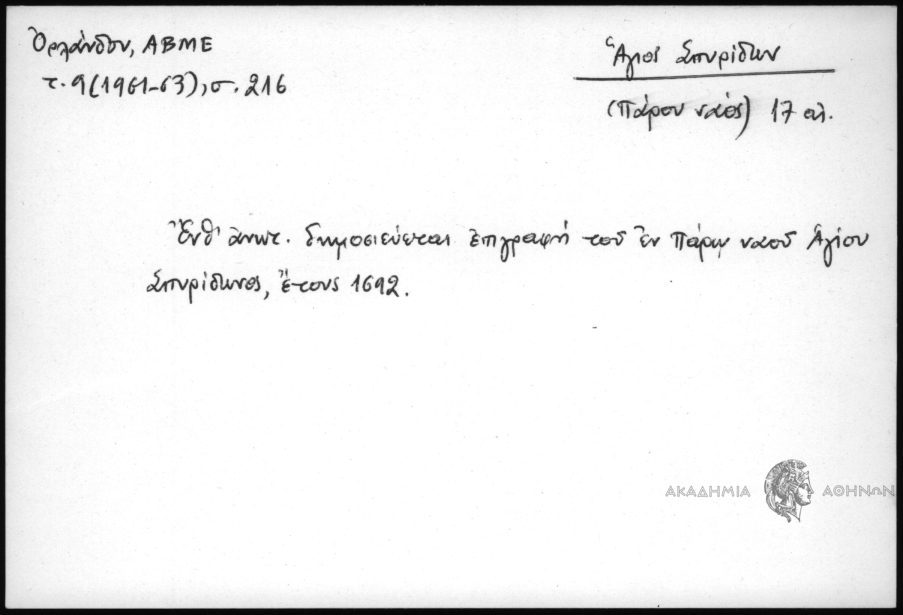 Ὀρλάνδου, ΑΒΜΕ
τ. 9 (1961-63), σ. 216
Ἅγιος Σπυρίδων
(Πάρου ναὸς) 17 αἰ.
Ἔνθ' ἀνωτ. δημοσιεύεται ἐπιγραφὴ τοῦ ἐν Πάρῳ ναοῦ Ἁγίου
Σπυρίδωνος, ἔτους 1692.
ΑΚΑΔΗΜΙΑ ΑΘΗΝΩΝ